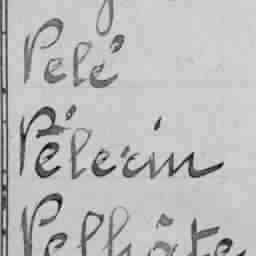 Pelé
Pélerin
Pelhâte